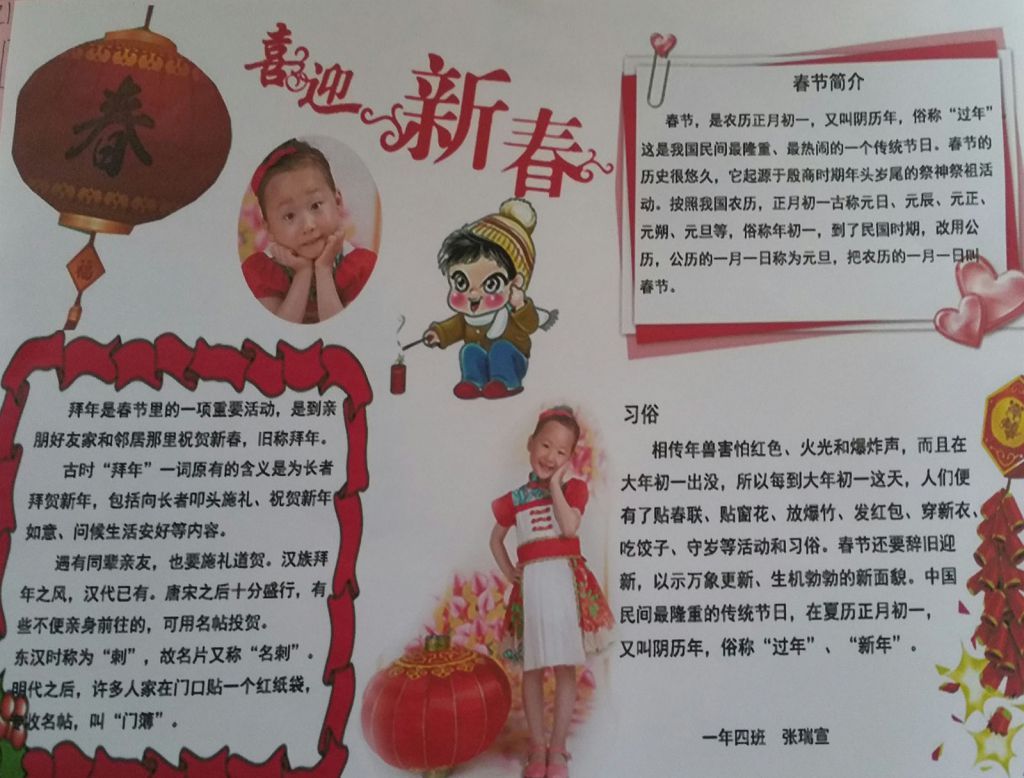 春
福
喜迎新春
春节简介
春节，是农历正月初一，又叫阴历年，俗称“过年”
这是我国民间最隆重、最热闹的一个传统节日。春节的
历史很悠久，它起源于殷商时期年头岁尾的祭神祭祖活
动。按照我国农历，正月初一古称元日、元辰、元正、
元朔、元旦等，俗称年初一，到了民国时期，改用公
历，公历的一月一日称为元旦，把农历的一月一日叫
春节。
拜年是春节里的一项重要活动，是到亲
朋好友家和邻居那里祝贺新春，旧称拜年。
古时“拜年”一词原有的含义是为长者
拜贺新年，包括向长者叩头施礼、祝贺新年
如意、问候生活安好等内容。
遇有同辈亲友，也要施礼道贺。汉族拜
年之风，汉代已有。唐宋之后十分盛行，有
些不便亲身前往的，可用名帖投贺。
东汉时称为“刺”，故名片又称“名刺”。
明代之后，许多人家在门口贴一个红纸袋，
收名帖，叫“门簿”。
习俗
相传年兽害怕红色、火光和爆炸声，而且在
大年初一出没，所以每到大年初一这天，人们便
有了贴春联、贴窗花、放爆竹、发红包、穿新衣、
吃饺子、守岁等活动和习俗。春节还要辞旧迎
新，以示万象更新、生机勃勃的新面貌。中国
民间最隆重的传统节日，在夏历正月初一，
又叫阴历年，俗称“过年”、“新年”。
一年四班 张瑞宣